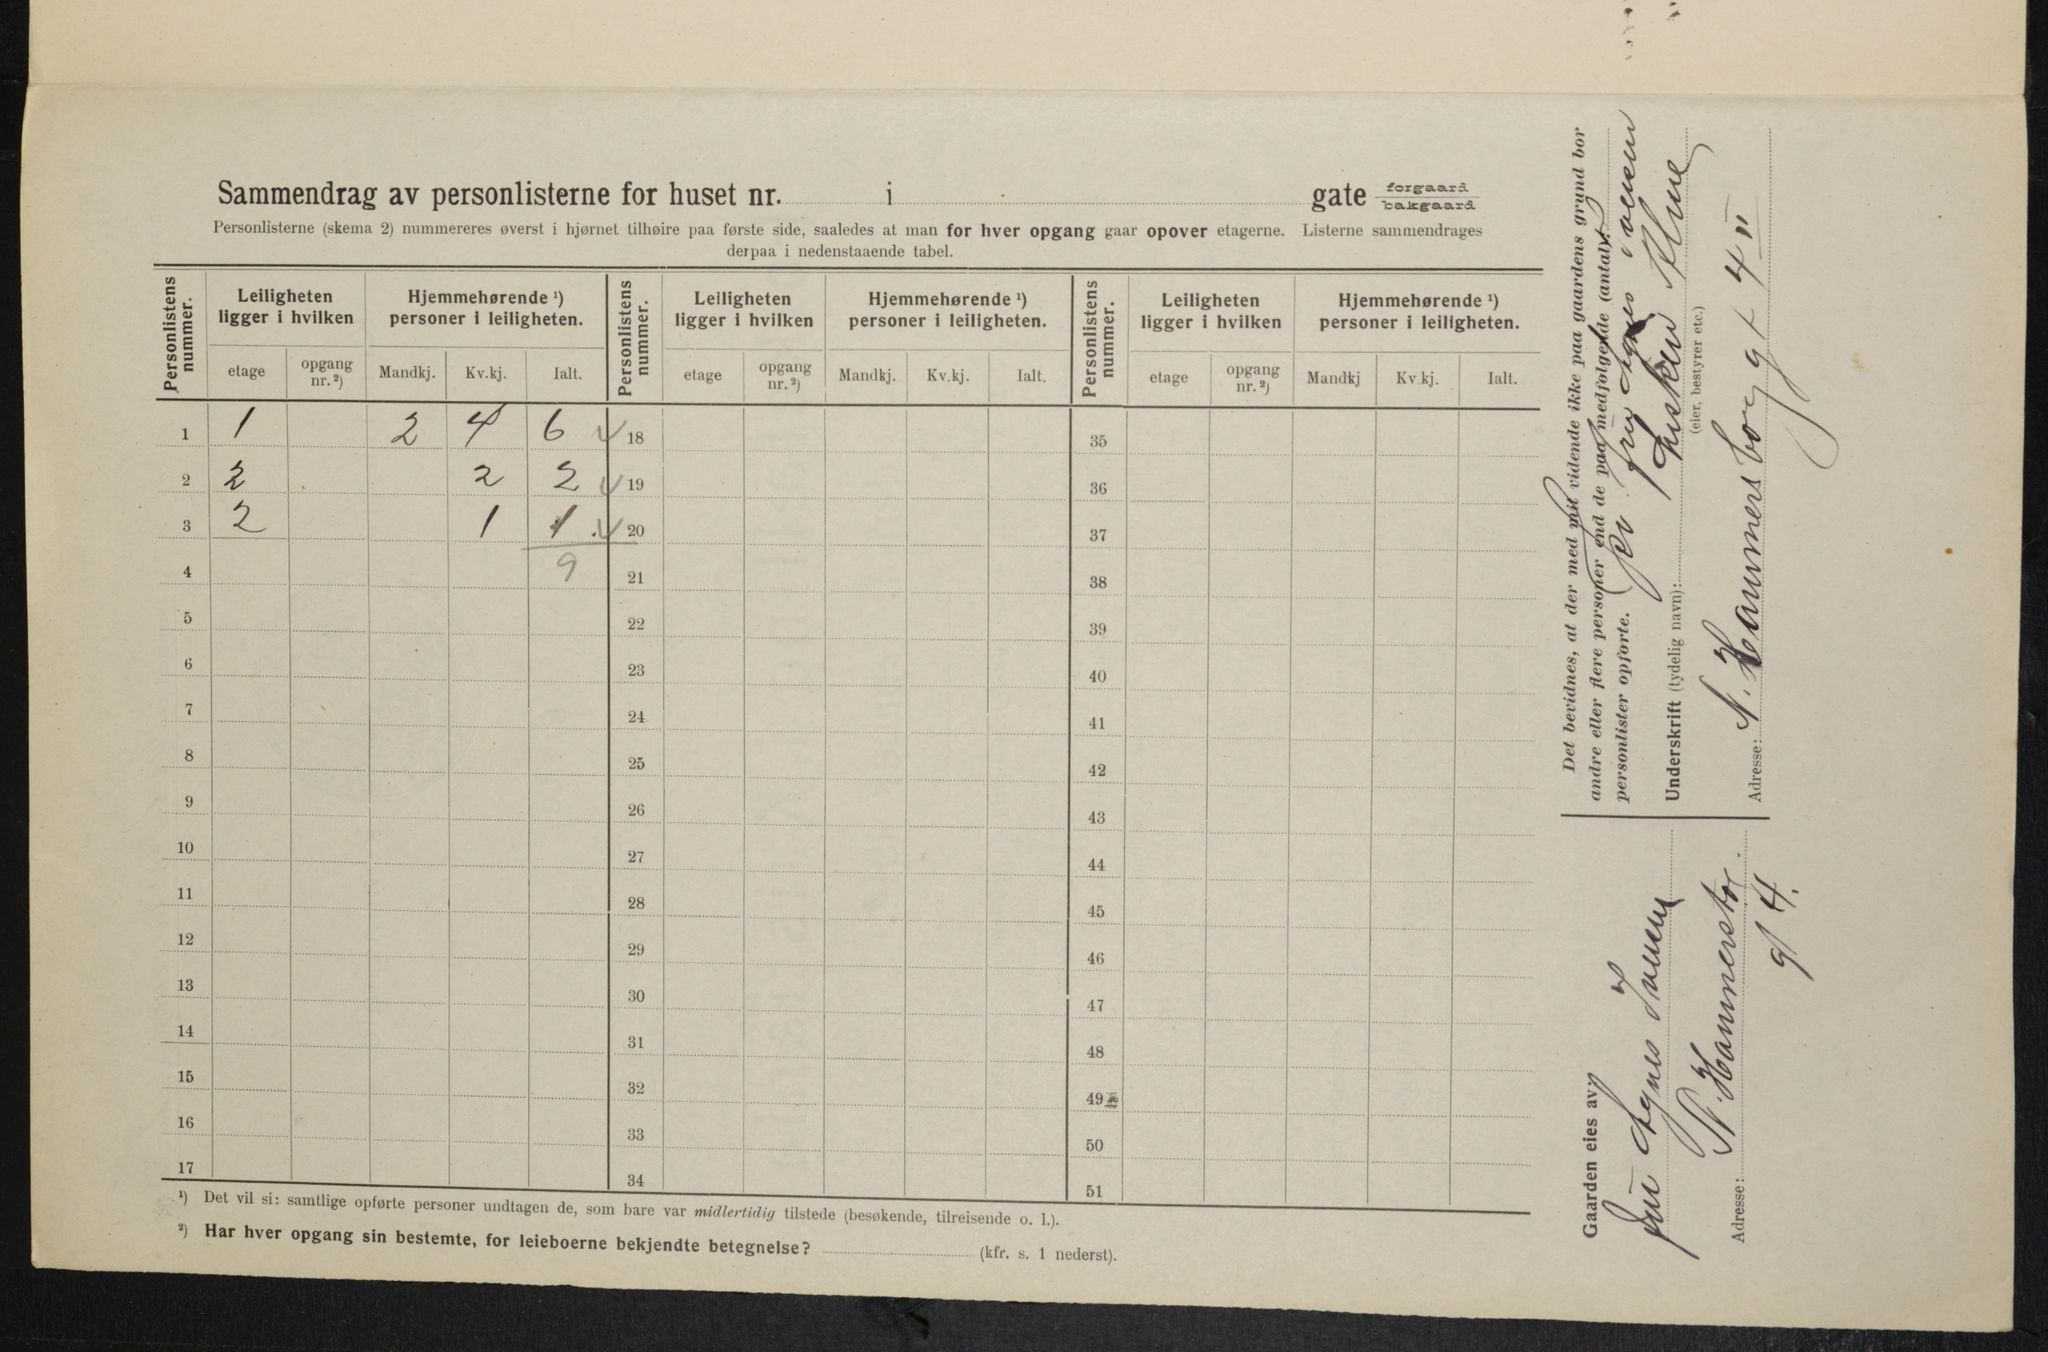 Sammendrag av personlisterne for huset nr. i gate forgaard bakgaard
Personlisterne (skema 2) nummereres øverst i hjørnet tilhøire paa første side, saaledes at man for hver opgang gaar opover etagerne. Listerne sammendrages
derpaa i nedenstaaende tabel.
Personlistens nummer. Leiligheten ligger i hvilken Hjemmehørende ¹) personer i leiligheten. Personlistens nummer. Leiligheten ligger i hvilken Hjemmehørende ¹) personer i leiligheten. Personlistens nummer. Leiligheten ligger i hvilken Hjemmehørende ¹) personer i leiligheten.
etage opgang nr. ²) Mandkj. Kv.kj. Ialt. etage opgang nr. ²) Mandkj. Kv.kj. Ialt. etage opgang nr. ²) Mandkj Kv.kj. Ialt.
1 1 2 4 6 18 35
2 2 2 2 19 36
3 2 1 1 20 37
4 9 21 38
5 22 39
6 23 40
7 24 41
8 25 42
9 26 43
10 27 44
11 28 45
12 29 46
13 30 47
14 31 48
15 32 49
16 33 50
17 34 51
¹) Det vil si: samtlige opførte personer undtagen de, som bare var midlertidig tilstede (besøkende, tilreisende o. l.).
²) Har hver opgang sin bestemte, for leieboerne bekjendte betegnelse? (kfr. s. 1 nederst).
Det bevidnes, at der med mit vidende ikke paa gaardens grund bor
andre eller flere personer end de paa medfølgende (antal)
personlister opførte.
fru Agnes
Underskrift (tydelig navn):
(eier, bestyrer etc.)
Adresse: N. Hammersborg gt 4 II
Gaarden eies av:
Fru Agnes
Adresse: N. Hammersbor
gt 4.